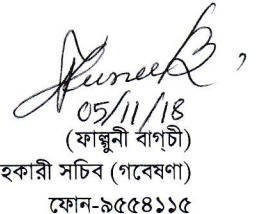 05/11/18
(ফাল্গুনী বাগচী)
হকারী সচিব (গবেষণা)
ফোন-৯৫৫৪১১৫